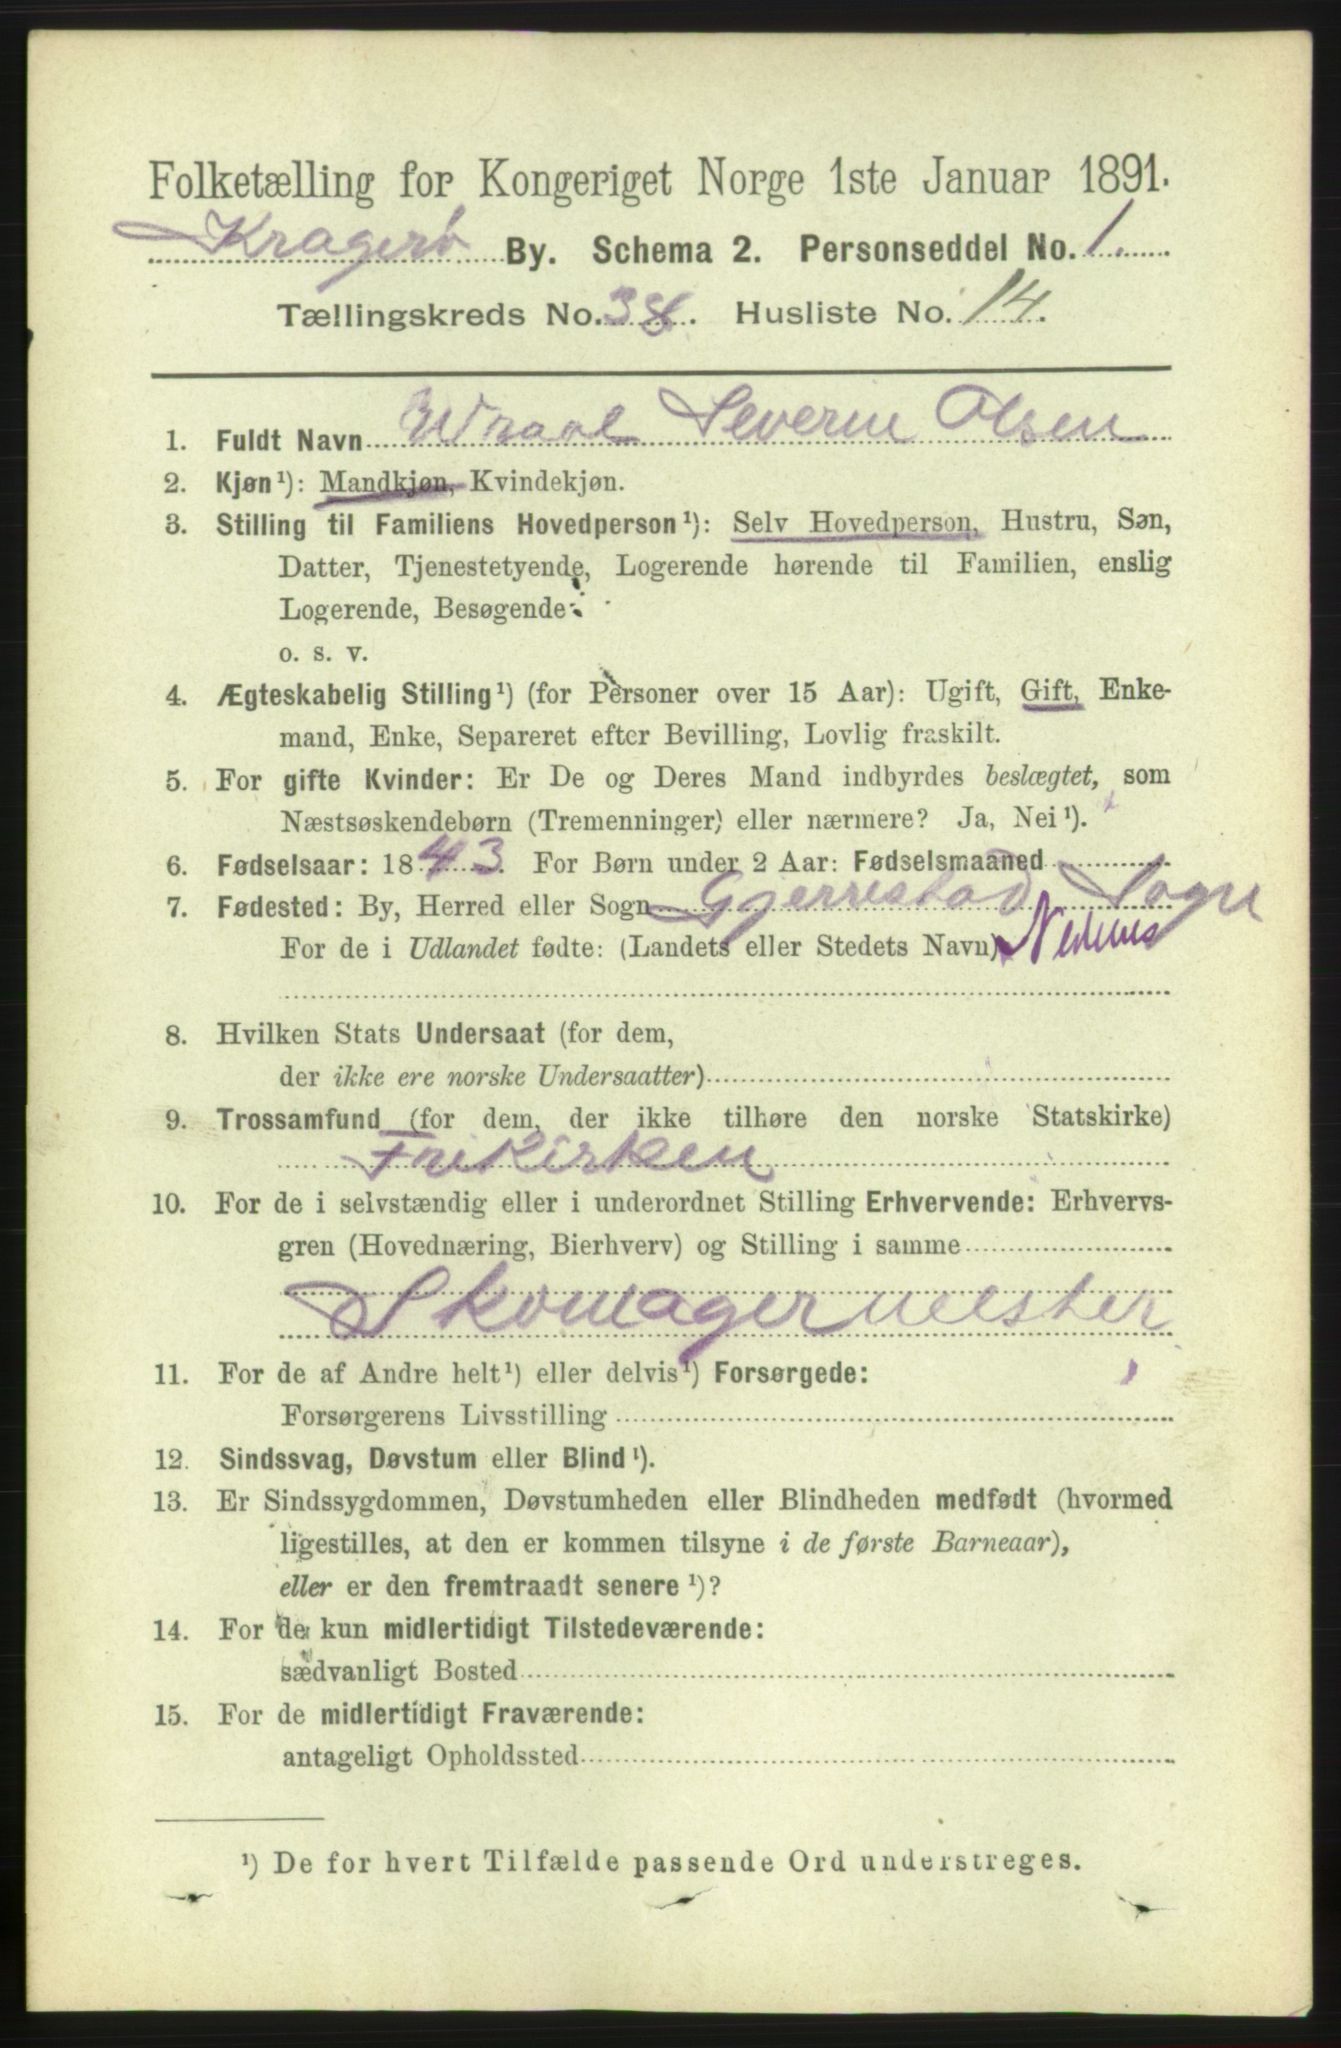 Folketælling for Kongeriget Norge 1ste Januar 1891.
Kragerø By. Schema 2. Personseddel No. 1.
Tællingskreds No. 38. Husliste No. 14.
1. Fuldt Navn Wraal Severin Olsen
2. Kjøn¹): Mandkjøn, Kvindekjøn.
3. Stilling til Familiens Hovedperson¹): Selv Hovedperson, Hustru, Søn,
Datter, Tjenestetyende, Logerende hørende til Familien, enslig
Logerende, Besøgende
o. s. v.
4. Ægteskabelig Stilling¹) (for Personer over 15 Aar): Ugift, Gift, Enke-
mand, Enke, Separeret efter Bevilling, Lovlig fraskilt.
5. For gifte Kvinder: Er De og Deres Mand indbyrdes beslægtet, som
Næstsøskendebørn (Tremenninger) eller nærmere? Ja, Nei¹).
6. Fødselsaar: 1843. For Børn under 2 Aar: Fødselsmaaned
7. Fødested: By, Herred eller Sogn Gjerrestad Sogn
For de i Udlandet fødte: (Landets eller Stedets Navn) Nedenes
8. Hvilken Stats Undersaat (for dem,
der ikke ere norske Undersaatter)
9. Trossamfund (for dem, der ikke tilhøre den norske Statskirke)
Frikirken
10. For de i selvstændig eller i underordnet Stilling Erhvervende: Erhvervs-
gren (Hovednæring, Bierhverv) og Stilling i samme
Skomagermester
11. For de af Andre helt¹) eller delvis¹) Forsørgede:
Forsørgerens Livsstilling
12. Sindssvag, Døvstum eller Blind¹).
13. Er Sindssygdommen, Døvstumheden eller Blindheden medfødt (hvormed
ligestilles, at den er kommen tilsyne i de første Barneaar),
eller er den fremtraadt senere¹)?
14. For de kun midlertidigt Tilstedeværende:
sædvanligt Bosted
15. For de midlertidigt Fraværende:
antageligt Opholdssted
¹) De for hvert Tilfælde passende Ord understreges.